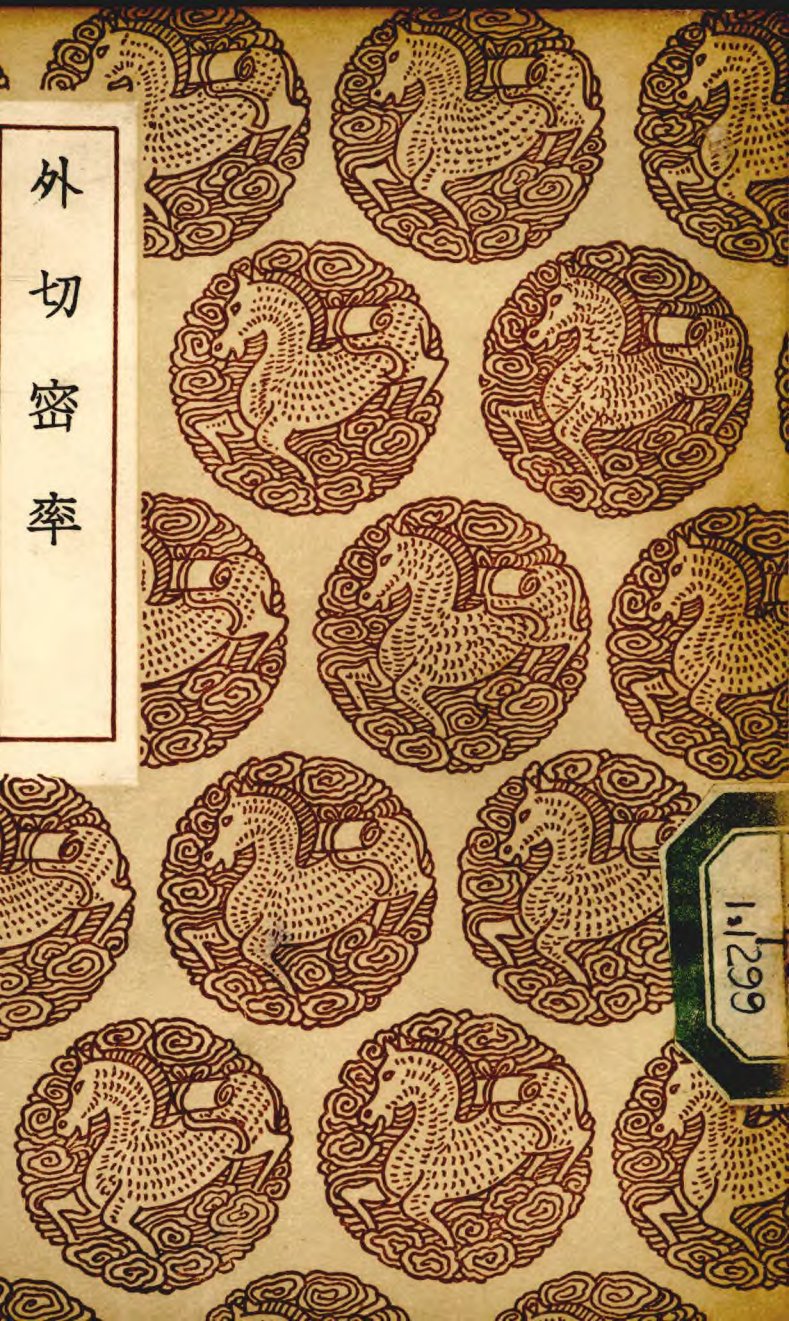 外切密率
1.1299